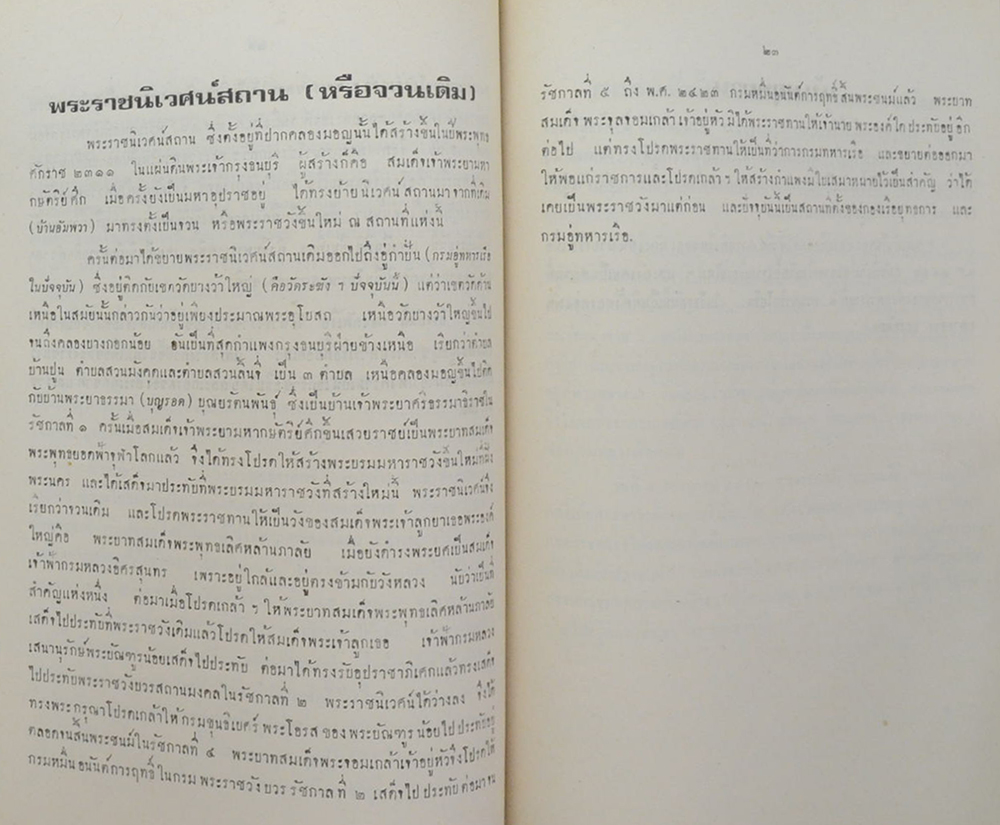 พระราชนิเวศน์สถาน (หรือจวนเดิม)
พระราชนิเวศน์สถาน ซึ่งตั้งอยู่ที่ปากคลองมอญนั้นได้สร้างขึ้นในปีพระพุทธ
ศักราช ๒๓๑๑ ในแผ่นดินพระเจ้ากรุงธนบุรี ผู้สร้างก็คือ สมเด็จเจ้าพระยามหา
กษัตริย์ศึก เมื่อครั้งยังเป็นมหาอุปราชอยู่ ได้ทรงย้ายนิเวศน์สถานมาจากที่เดิม
(บ้านอัมพวา) มาทรงตั้งเป็นจวน หรือพระราชวังขึ้นใหม่ ณ สถานที่แห่งนี้
ครั้นต่อมาได้ขยายพระราชนิเวศน์สถานเดิมออกไปถึงอู่กำปั่น (กรมอู่ทหารเรือ
ในปัจจุบัน) ซึ่งอยู่ติดกับเขตวัดบางว้าใหญ่ (คือวัดระฆัง ฯ ปัจจุบันนี้) แต่ว่าเขตวัดด้าน
เหนือในสมัยนั้นกล่าวกันว่าอยู่เพียงประมาณพระอุโบสถ เหนือวัดบางว้าใหญ่ขึ้นไป
จนถึงคลองบางกอกน้อย อันเป็นที่สุดกำแพงกรุงธนบุรีฝ่ายข้างเหนือ เรียกว่าตำบล
บ้านปูน ตำบลสวนมังคุดและตำบลสวนลิ้นจี่ เป็น ๓ ตำบล เหนือคลองมอญขึ้นไปติด
กับบ้านพระยาธรรมา (บุญรอด) บุณยรัตนพันธุ์ ซึ่งเป็นบ้านเจ้าพระยาศรีธรรมาธิราชใน
รัชกาลที่ ๑ ครั้นเมื่อสมเด็จเจ้าพระยามหากษัตริย์ศึกขึ้นเสวยราชย์เป็นพระบาทสมเด็จ
พระพุทธยอดฟ้าจุฬาโลกแล้ว จึงได้ทรงโปรดให้สร้างพระบรมมหาราชวังขึ้นใหม่ที่ฝั่ง
พระนคร และได้เสด็จมาประทับที่พระบรมมหาราชวังที่สร้างใหม่นี้ พระราชนิเวศน์จึง
เรียกว่าจวนเดิม และโปรดพระราชทานให้เป็นวังของสมเด็จพระเจ้าลูกยาเธอพระองค์
ใหญ่คือ พระบาทสมเด็จพระพุทธเลิศหล้านภาลัย เมื่อยังดำรงพระยศเป็นสมเด็จ
เจ้าฟ้ากรมหลวงอิศรสุนทร เพราะอยู่ใกล้และอยู่ตรงข้ามกับวังหลวง นับว่าเป็นที่
สำคัญแห่งหนึ่ง ต่อมาเมื่อโปรดเกล้า ฯ ให้พระบาทสมเด็จพระพุทธเลิศหล้านภาลัย
เสด็จไปประทับที่พระราชวังเดิมแล้วโปรดให้สมเด็จพระเจ้าลูกเธอ เจ้าฟ้ากรมหลวง
เสนานุรักษ์พระบัณฑูรน้อยเสด็จไปประทับ ต่อมาได้ทรงรับอุปราชาภิเศกแล้วทรงเสด็จ
ไปประทับพระราชวังบวรสถานมงคลในรัชกาลที่ ๒ พระราชนิเวศน์ได้ว่างลง จึงได้
ทรงพระกรุณาโปรดเกล้าให้กรมขุนธิเบศร์ พระโอรส ของ พระบัณฑูร น้อยไป ประทับอยู่
ตลอดจนสิ้นพระชนม์ในรัชกาลที่ ๔ พระบาทสมเด็จพระจอมเกล้าเจ้าอยู่หัวจึงโปรดให้
กรมหมื่นอนันต์การฤทธิ์ในกรม พระราชวัง บวร รัชกาล ที่ ๒ เสด็จไป ประทับ ต่อมา จน
๒๓
รัชกาลที่ ๕ ถึง พ.ศ. ๒๔๒๓ กรมหมื่นอนันต์การฤทธิ์สิ้นพระชนม์แล้ว พระบาท
สมเด็จ พระจุลจอมเกล้า เจ้าอยู่หัว มิได้พระราชทานให้เจ้านาย พระองค์ใด ประทับอยู่ อีก
ต่อไป แต่ทรงโปรดพระราชทานให้เป็นที่ว่าการกรมทหารเรือ และขยายต่อออกมา
ให้พอแก่ราชการและโปรดเกล้า ฯ ให้สร้างกำแพงมีใบเสมาหมายไว้เป็นสำคัญ ว่าได้
เคยเป็นพระราชวังมาแต่ก่อน และปัจจุบันนี้เป็นสถานที่ตั้งของกองเรือยุทธการ และ
กรมอู่ทหารเรือ.